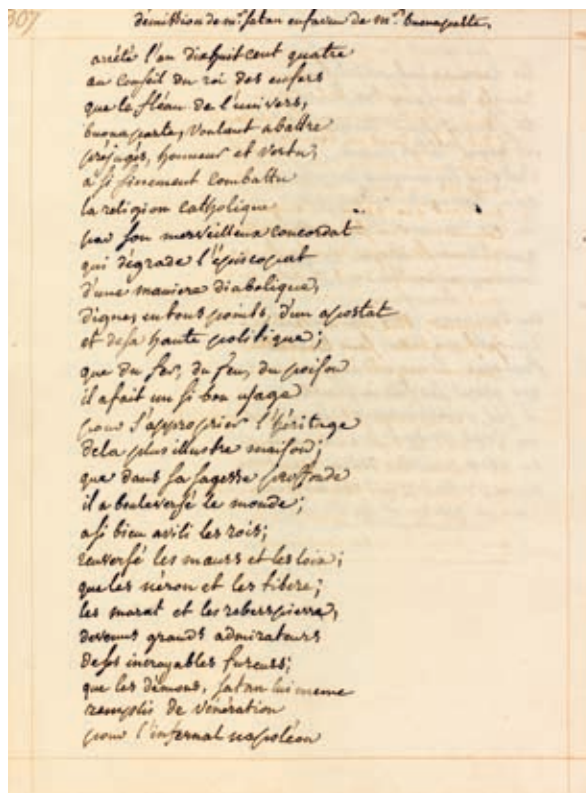 307
démission de mr. satan en faveur de mr. buonaparte,
arrêté l'an dixhuit cent quatre
au conseil du roi des enfers
que le fléau de l'univers,
buonaparte, voulant abattre
préjugés, honneur et vertu,
a si finement combattu
la religion catholique
par son merveilleux concordat
qui dégrade l'épiscopat
d'une maniere diabolique,
digne, en tous points, d'un apostat
et de sa haute politique;
que du fer, du feu, du poison
il a fait un si bon usage
pour s'approprier l'héritage
de la plus illustre maison;
que dans sa sagesse proffonde
il a bouleversé le monde;
a si bien avili les rois;
renversé les mœurs et les loix;
que les néron et les tibere;
les marat et les roberspierre,
devenus grands admirateurs
de ses incroyables fureurs;
que les démons, satan lui meme
remplis de vénération
pour l'infernal napoléon